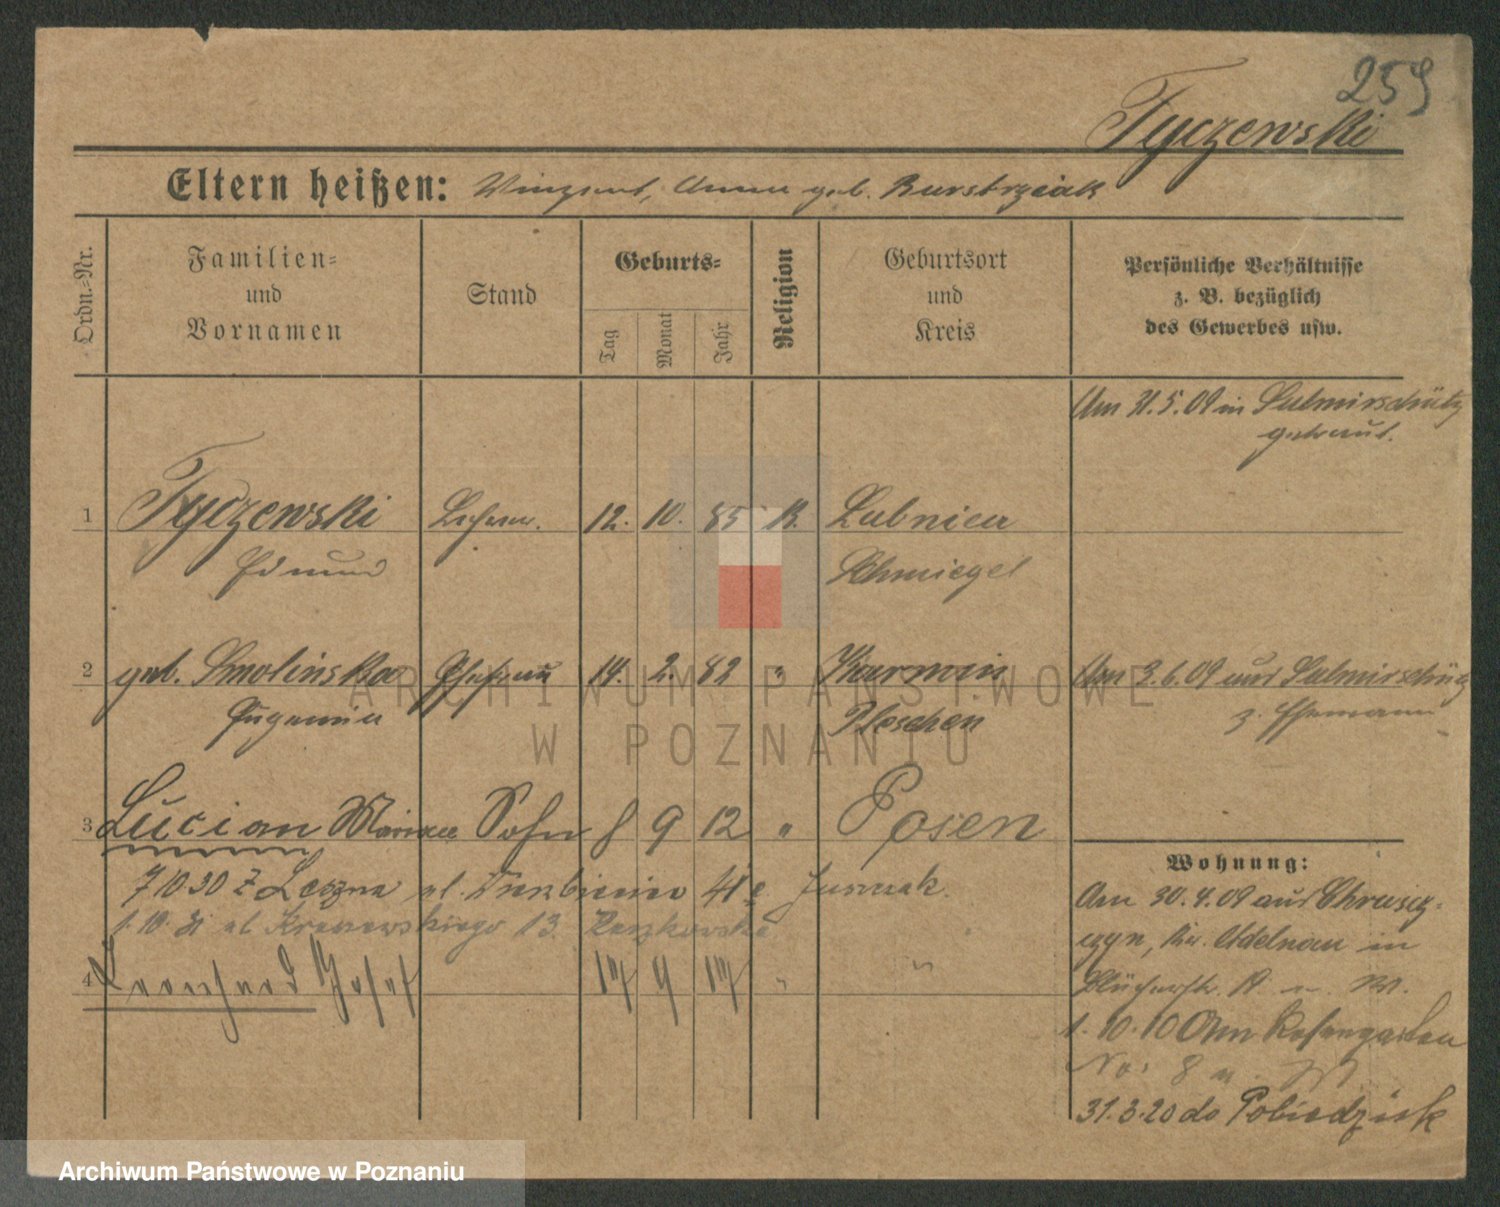 259
Tyczewski
Eltern heißen: Vinzent, Anna geb. Burstrziak
Ordn.-Nr.
Familien- und Vornamen
Stand
Geburts-
Tag
Monat
Jahr
Religion
Geburtsort und Kreis
Persönliche Verhältnisse z. B. bezüglich des Gewerbes usw.
Am 31.5.09 in Sulmirschütz
getraut.
1 Tyczewski Lehrer. 12. 10. 85 K. Lubnica
Edmund Schmiegel
2 geb. Smolinska Ehefrau 14. 2. 82 " Karmin Am 3.6.09 aus Sulmirschütz
Eugenia Pleschen z. Ehemann
3 Lucian Marian Sohn 8 9 12 " Posen
7 10 30 z Leszna ul. 41 Jusczak.
1.10.31 ul Kraszewskiego 13.
4 Leonhard Josef 17 9 17 " "
Wohnung:
Am 30.4.09 aus
Kr. Adelnau in
Blücherstr.
1.10.10 Am Rosengarten
No: 8
31.3.20 do Pobiedzisk
ARCHIWUM PAŃSTWOWE
W POZNANIU
Archiwum Państwowe w Poznaniu